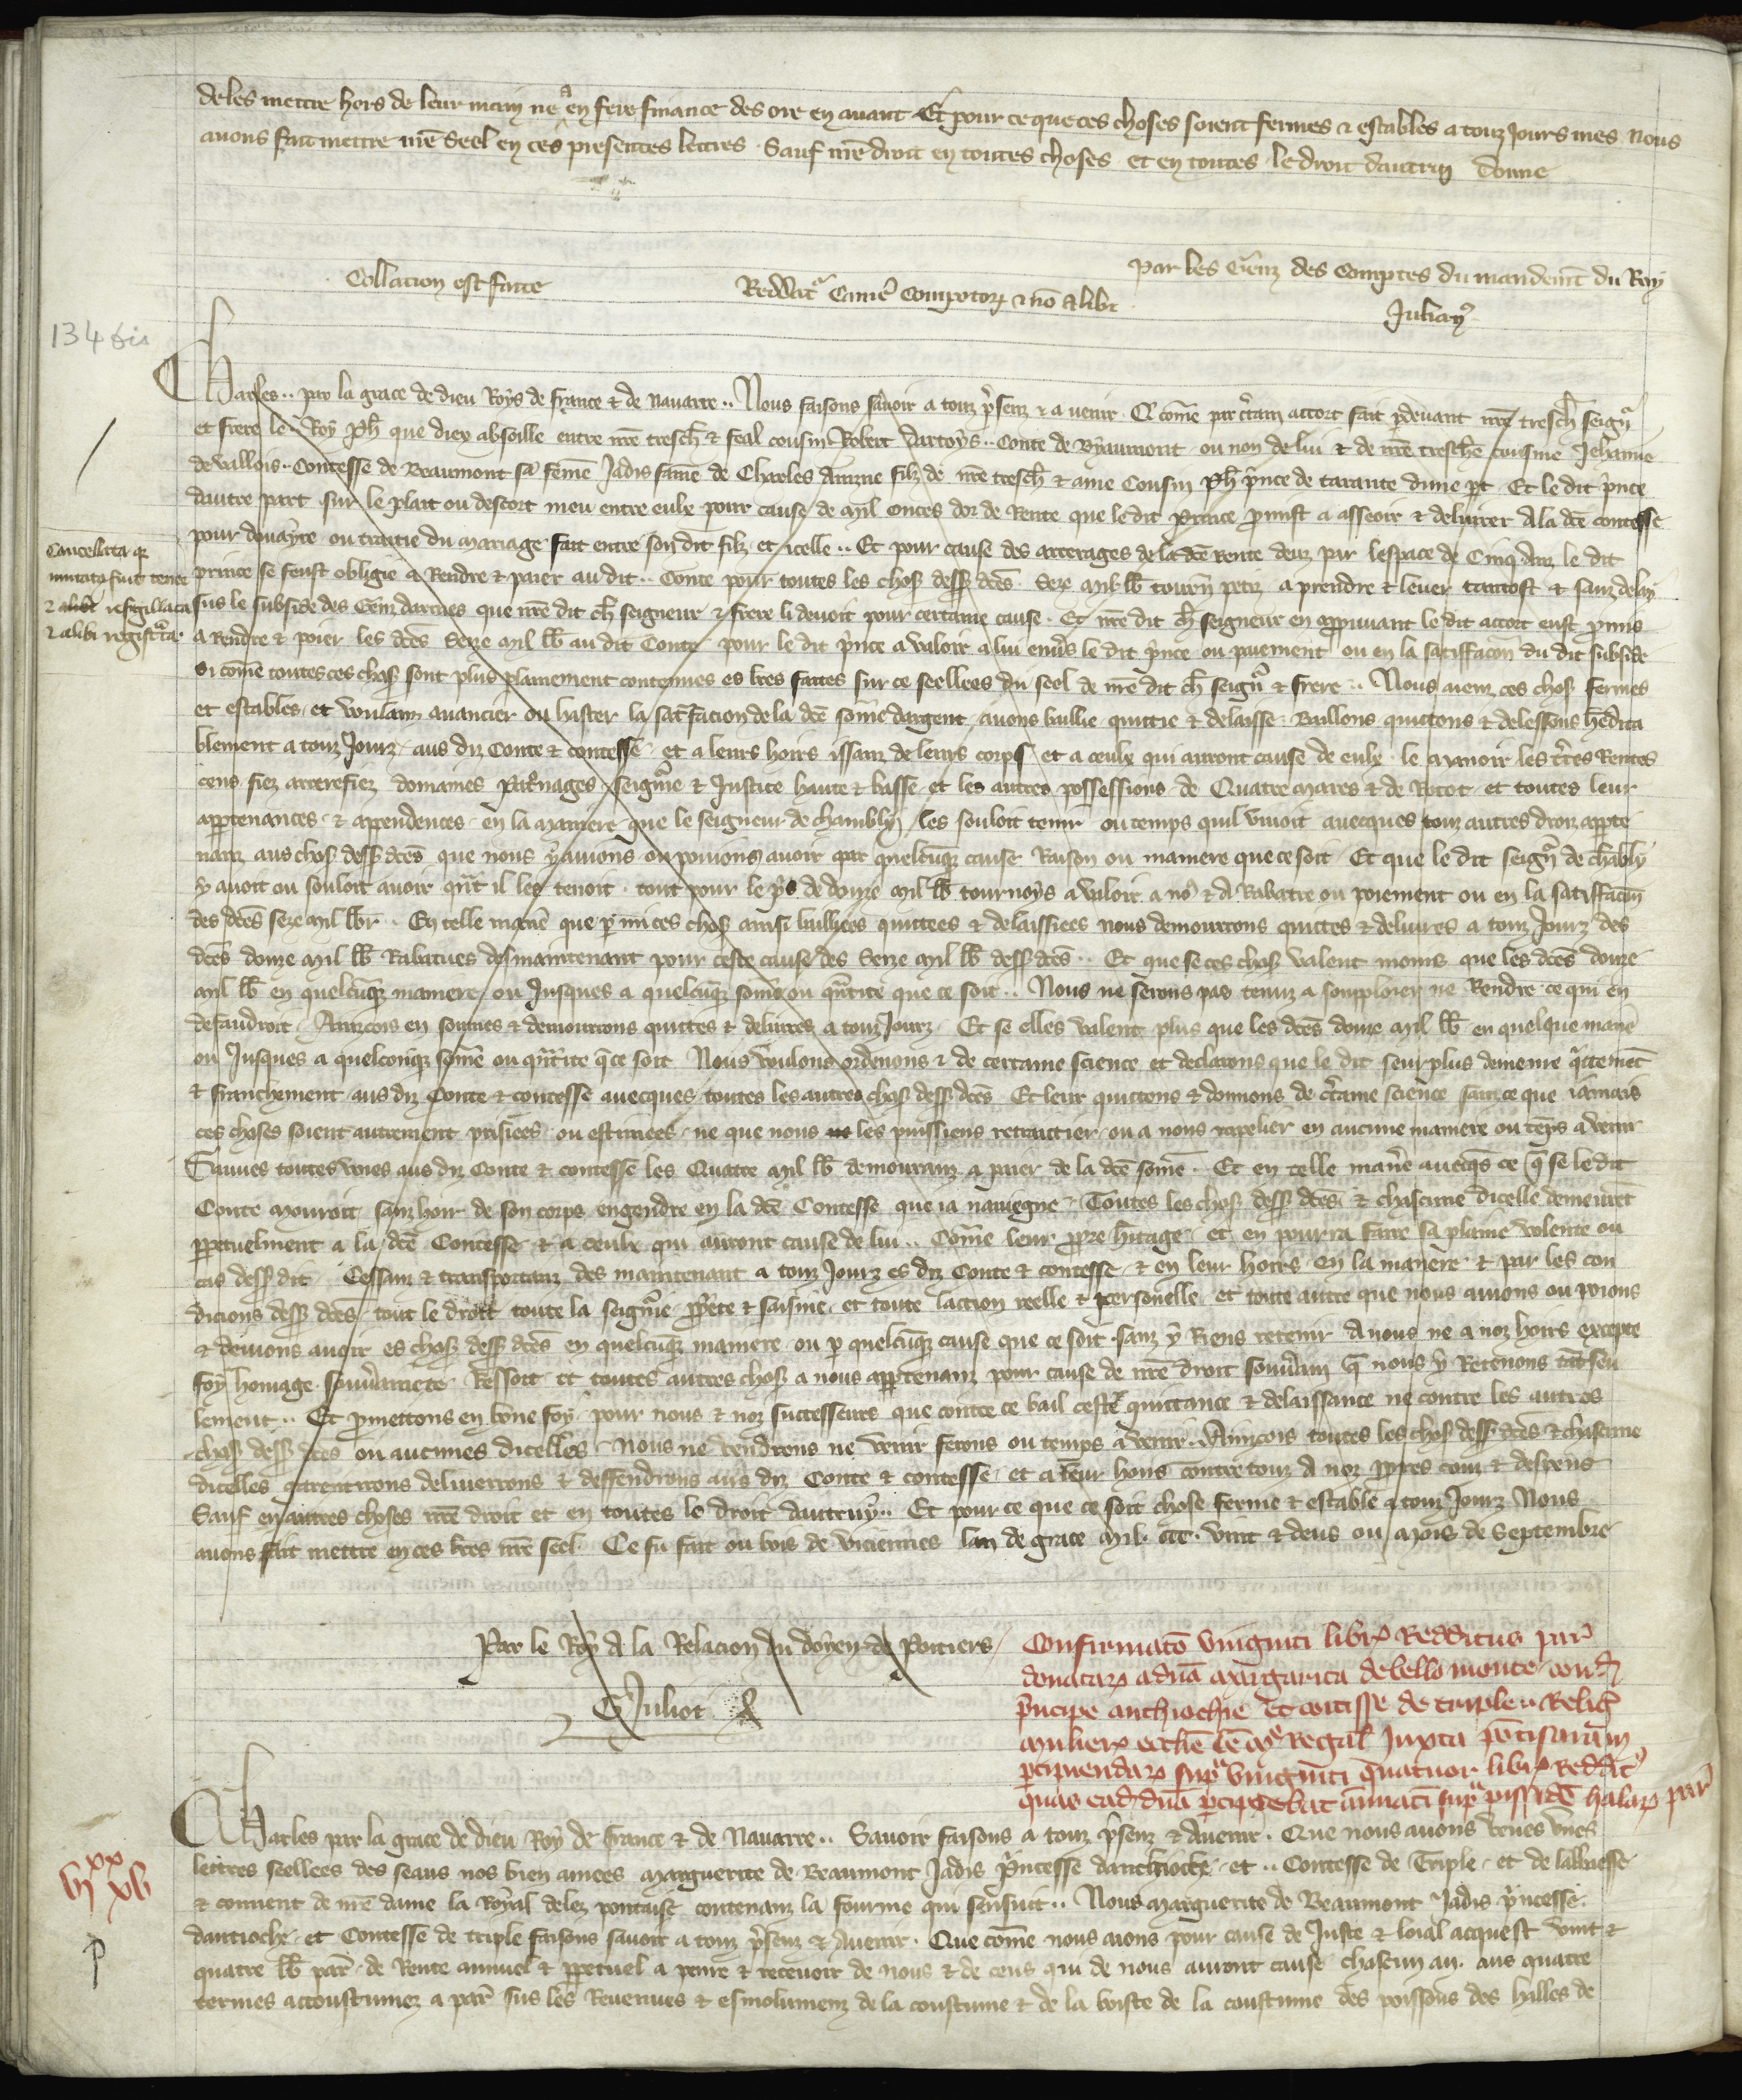 de les mettre hors de leur main ne a en fere finance des ore en avant Et pour ce que ces choses soient fermes & estables a touz jours mes Nous
avons fait mettre nr̄e Seel en ces presentes lettres . Sauf nr̄e droit en toutes choses et en toutes le droit dautrui Donne
Par les Genz des Comptes du mandemt̄ du Roy
Collacion est faite
Reddatr Camē Compotoꝝ & nō alibi
Julianꝯ
134 bis
Charles .. par la grace de dieu Roys de france & de Navarre .. Nous faisons savoir a touz p̄senz & a venir . Q̄ com̄e par c̄tain accort fait p̄ devant nr̄e tresch̄ seignr̄
et frere le Roy Ph̄ que diex absoille entre nr̄e tresch̄ & feal cousin Robert dartoys .. Conte de Byaumont ou non de lui & de nr̄e tresch̄e cousine Jehanne
de Vallois .. Contesse de Beaumont sa fem̄e Jadis fame de Charles ainzne filz de nr̄e tresch̄ & ame Cousin Ph̄ p̄nce de tarante dune p̄t . Et le dit p̄nce
dautre part sur le plait ou descort meu entre eulx pour cause de mil onces dor de Rente que le dit Prince p̄mist a asseoir & delivrer A la dc̄e contesse
pour douayre ou traitie du mariage fait entre son dit filz et icelle .. Et pour cause des arrerages de la dc̄e Rente deuz par lespace de Cinq Anz le dit
Cancellata qr
mutata fuit tenor
& alibi resigillata
& alibi registrata
prince se feust obligie a Rendre & paier au dit .. Conte pour toutes les chosꝫ dessꝫ dc̄es . Seze mil lb̄ tourn̄ petiz a prendre & lever tantost & sanz delay
sus le subside des Genz darmes que nr̄e dit ch̄ seigneur & frere li devoit pour certaine cause . Et nr̄e dit ch̄ seigneur en appruvant le dit accort eust p̄mis
a Rendre & poier les dc̄es Seize mil lb̄ au dit Conte pour le dit p̄nce a valoir a lui envs̄ le dit p̄nce ou paiement ou en la satiffacōn du dit subside
si com̄e toutes ces chosꝫ sont plus plainement contenues es lr̄es faites sur ce seellees du seel de nr̄e dit ch̄ seignr̄ & frere .. Nous aienz ces chosꝫ fermes
et estables et voulanz avancier ou haster la satifacion de la dc̄e som̄e dargent avons baillie quittie & delaisse . Baillons quittons & delessons h̄edita
blement a touz Jourz aus diz Conte & contesse et a leurs hoirs issanz de leurs corps et a ceulx qui auront cause de eulx le Manoir les tr̄es Rentes
cens fiez arrerefiez domaines Patronages seignr̄ie & Justice haute & basse et les autres possessions de Quatremares & de Rotot et toutes leur
appartenances & appendences en la maniere que le seigneur de Chambly les souloit tenir ou temps quil vivoit avecques touz autres droiz apparte
nanz aus chosꝫ dessꝫ dc̄es que nous y avions ou povions avoir par quelcūqꝫ cause Raison ou maniere que ce soit . Et que le dit seignr̄ de Chābly
y avoit ou souloit avoir qn̄t il les tenoit . tout pour le p̄s de douze mil lb̄ tournoys a valoir a nos & a Rabatre ou poiement ou en la satiffacōn
des dc̄es seze mil lbr̄ .. En telle maniē que p̄mi ces chosꝫ ainsi bailliees quittees & delaissiees nous demourrons quittes & delivres a touz Jourz des
dc̄es douze mil lb̄ Rabatues des maintenant pour ceste cause des Seze mil lb̄ dessꝫ dc̄es .. Et que se ces chosꝫ valent moins que les dc̄es douze
mil lb̄ en quelcūqꝫ maniere ou Jusques a quelcūqꝫ som̄e ou qn̄tite que ce soit .. Nous ne serons pas tenuz a souploier ne Rendre ce qui en
defaudroit . Ainzcois en somes & demourrons quittes & delivres a touz Jourz . Et se elles valent plus que les dc̄es douze mil lb̄ en quelque maniē
ou Jusques a quelconqꝫ som̄e ou qn̄tite q̄ ce soit Nous voulons ordenons & de certaine science et declarons que le dit seurplus demeure qittemēt
& franchement aus diz Conte & contesse avecques toutes les autres chosꝫ dessꝫ dc̄es Et leur quittons & donnons de c̄taine science sanz ce que jamais
ces choses soient autrement prisiees ou estimees ne que nous les puissiens retraitier ou a nous rapeler en aucune maniere ou tēps a venir
Sauves toutes voies aus diz Conte & contesse les Quatre mil lb̄ demouranz a paier de la dc̄e som̄e . Et en telle maniē avecqs̄ ce q̄ se le dit
Conte mouroit sanz hoir de son corps engendre en la dc̄e Contesse que ja naviegne . Toutes les chosꝫ dessꝫ dc̄es & chascune dicelle demeurēt
ꝑpetuelment a la dc̄e Contesse & a ceulx qui auront cause de lui .. Com̄e leur p̄pre h̄itage et en pourra faire sa plaine volente ou
cas dessꝫ dit Cessanz & transportanz des maintenant a touz Jourz es diz Conte & contesse & en leur hoirs en la maniere & par les con
dicions dessꝫ dc̄es tout le droit toute la seignr̄ie p̄p̄ete & saisine et toute laction reelle & personelle et toute autre que nous avions ou poions
& devions avoir es chosꝫ dessꝫ dc̄es en quelcūqꝫ maniere ou p̄ quelcūqꝫ cause que ce soit . sanz y Riens retenir A nous ne a noz hoirs excepte
foy homage souv̄ainete Ressort et toutes autres chosꝫ a nous appartenanz pour cause de nr̄e droit souv̄ain q̄ nous y Retenons tāt seu
lement .. Et p̄mettons en bōne foy pour nous & noz successeurs que contre ce bail ceste quittance & delaissance ne contre les autres
chosꝫ dessꝫ dc̄es ou aucunes dicelles Nous ne vendrons ne venir ferons ou temps a venir . Ainzcois toutes les chosꝫ dessꝫ dc̄es & chascune
dicelles garentirons deliverrons & deffendrons aus diz Conte & contesse et a leur hoirs contre touz A noz p̄pres couz & despens
Sauf en autres choses nr̄e droit et en toutes le droit dautruy .. Et pour ce que ce soit chose ferme & estable a touz Jourz Nous
avons fait mettre en ces lr̄es nr̄e seel . Ce fu fait ou bois de Viciennes lan de grace mil ccc . vint & deus ou mois de Septembre
Par le Roy A la Relacion du doyen de Poitiers
G Juliot
Confirmatō viginti libꝝ Redditus par̄
donataꝝ a dnā Margarita de bello monte cond̄
p̄ncipe anthiochie Et cōtisse de triple .. Reliḡ
mulierꝝ ecclīe bē mr̄e Regal̄ Juxta pōtisaram
p̄cipiendaꝝ supr̄ viginti quatuor libꝝ Reddit
quas ead̄ dnā p̄cipiebat annuati supr̄ pissidē halaꝝ par̄
Charles par la grace de dieu Roy de france & de Navarre .. Savoir faisons a touz p̄senz & Avenir . Que nous avons veues unes
lettres seellees des seaus nos bien amees Marguerite de Beaumont Jadis p̄ncesse danthioche et .. Contesse de Triple et de labbaesse
vixx xv
& couvent de nr̄e dame la Royal delez pontaise contenanz la fourme qui sensuit .. Nous Marguerite de Beaumont Jadis p̄ncesse
dantioche et Contesse de triple faisons savoir a touz p̄senz & Avenir . Que com̄e nous aions pour cause de Juste & loial acquest vint &
p
quatre lb̄ par̄ de Rente annuel & ꝑpetuel a penre & recevoir de nous & de ceus qui de nous auront cause chascun an aus quatre
termes accoustumez a par̄ sus les Revenues & esmolumenz de la coustume & de la boiste de la coustume des poissons des halles de